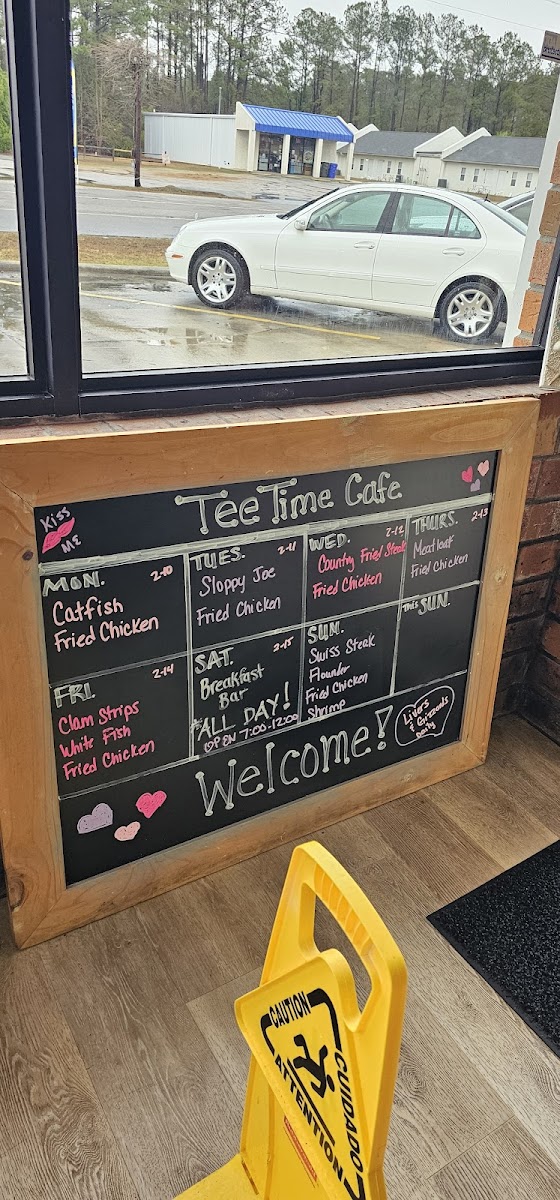 Kiss
ME
TeeTime Cafe
MON. 2-10
Catfish
Fried Chicken
TUES. 2-11
Sloppy Joe
Fried Chicken
WED. 2-12
Country Fried Steak
Fried Chicken
THURS. 2-13
Meatloaf
Fried Chicken
FRI. 2-14
Clam Strips
White Fish
Fried Chicken
SAT. 2-15
Breakfast
Bar
*ALL DAY!
OPEN 7:00-12:00
SUN.
Swiss Steak
Flounder
Fried Chicken
Shrimp
THIS SUN.
Welcome!
Livers
& Gizzards
Daily
CAUTION
CUIDADO
ATTENTION